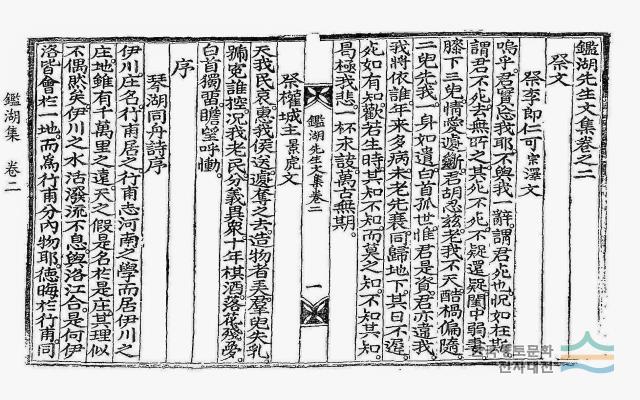 鑑湖先生文集卷之二
祭文
祭李郎仁可宗澤文
嗚乎君實忘我耶不與我一辭謂君死也怳如枉斯
謂君不死去無所之其死不死不疑還疑閨中弱妻
膝下三兒情愛遽斷君胡忍玆老我不天酷禍偏隨
二兒先我一身如遺白首孤世惟君是資君亦違我
我將依誰年来多病未老先衰同歸地下其日不遲
死如有知歡若生時其知不知而莫之知不知其知
曷極我悲一杯永訣萬古無期
祭權城主景虎文
鑑湖先生文集卷二
一
天我民哀惠我侯送遽奪之去造物者羣兒失乳
號寃誰控况我老民分義異衆十年棋酒落花殘夢
白首獨留瞻望呼慟
序
琴湖同舟詩序
伊川庄名行甫居之行甫志河南之學而居伊川之
庄地雖有千萬里之遠天之假是名於是庄其理似
不偶然矣伊川之水沽潑流不息與洛江合是何伊
洛皆會於一地而爲行甫分內物耶德晦於行甫同
鑑湖集 卷二
한국향토문화
전자대전